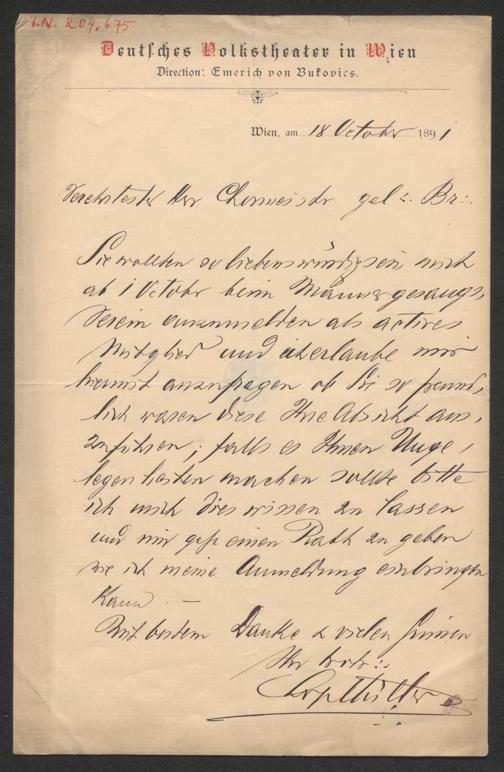 I.N. 204.675
Deutsches Volkstheater in Wien
Direction: Emerich von Bukovics.
Wien, am 18 October 1891
Verehrtester Herr Chormeister gel∴ Br∴
Sie wollten so liebenswürdig sein mich
ab 1 October beim Männergesangs-
Verein anzumelden als actives
Mitglied und ich erlaube mir
hiermit anzufragen ob Sie so freund-
lich waren diese Ihre Absicht aus-
zuführen; falls es Ihnen Unge-
legenheiten machen sollte bitte
ich mich dies wissen zu lassen
und mir gefl einen Rath zu geben
wie ich meine Anmeldung einbringen
kann. —
Mit bestem Danke & vielen Grüssen
Ihr